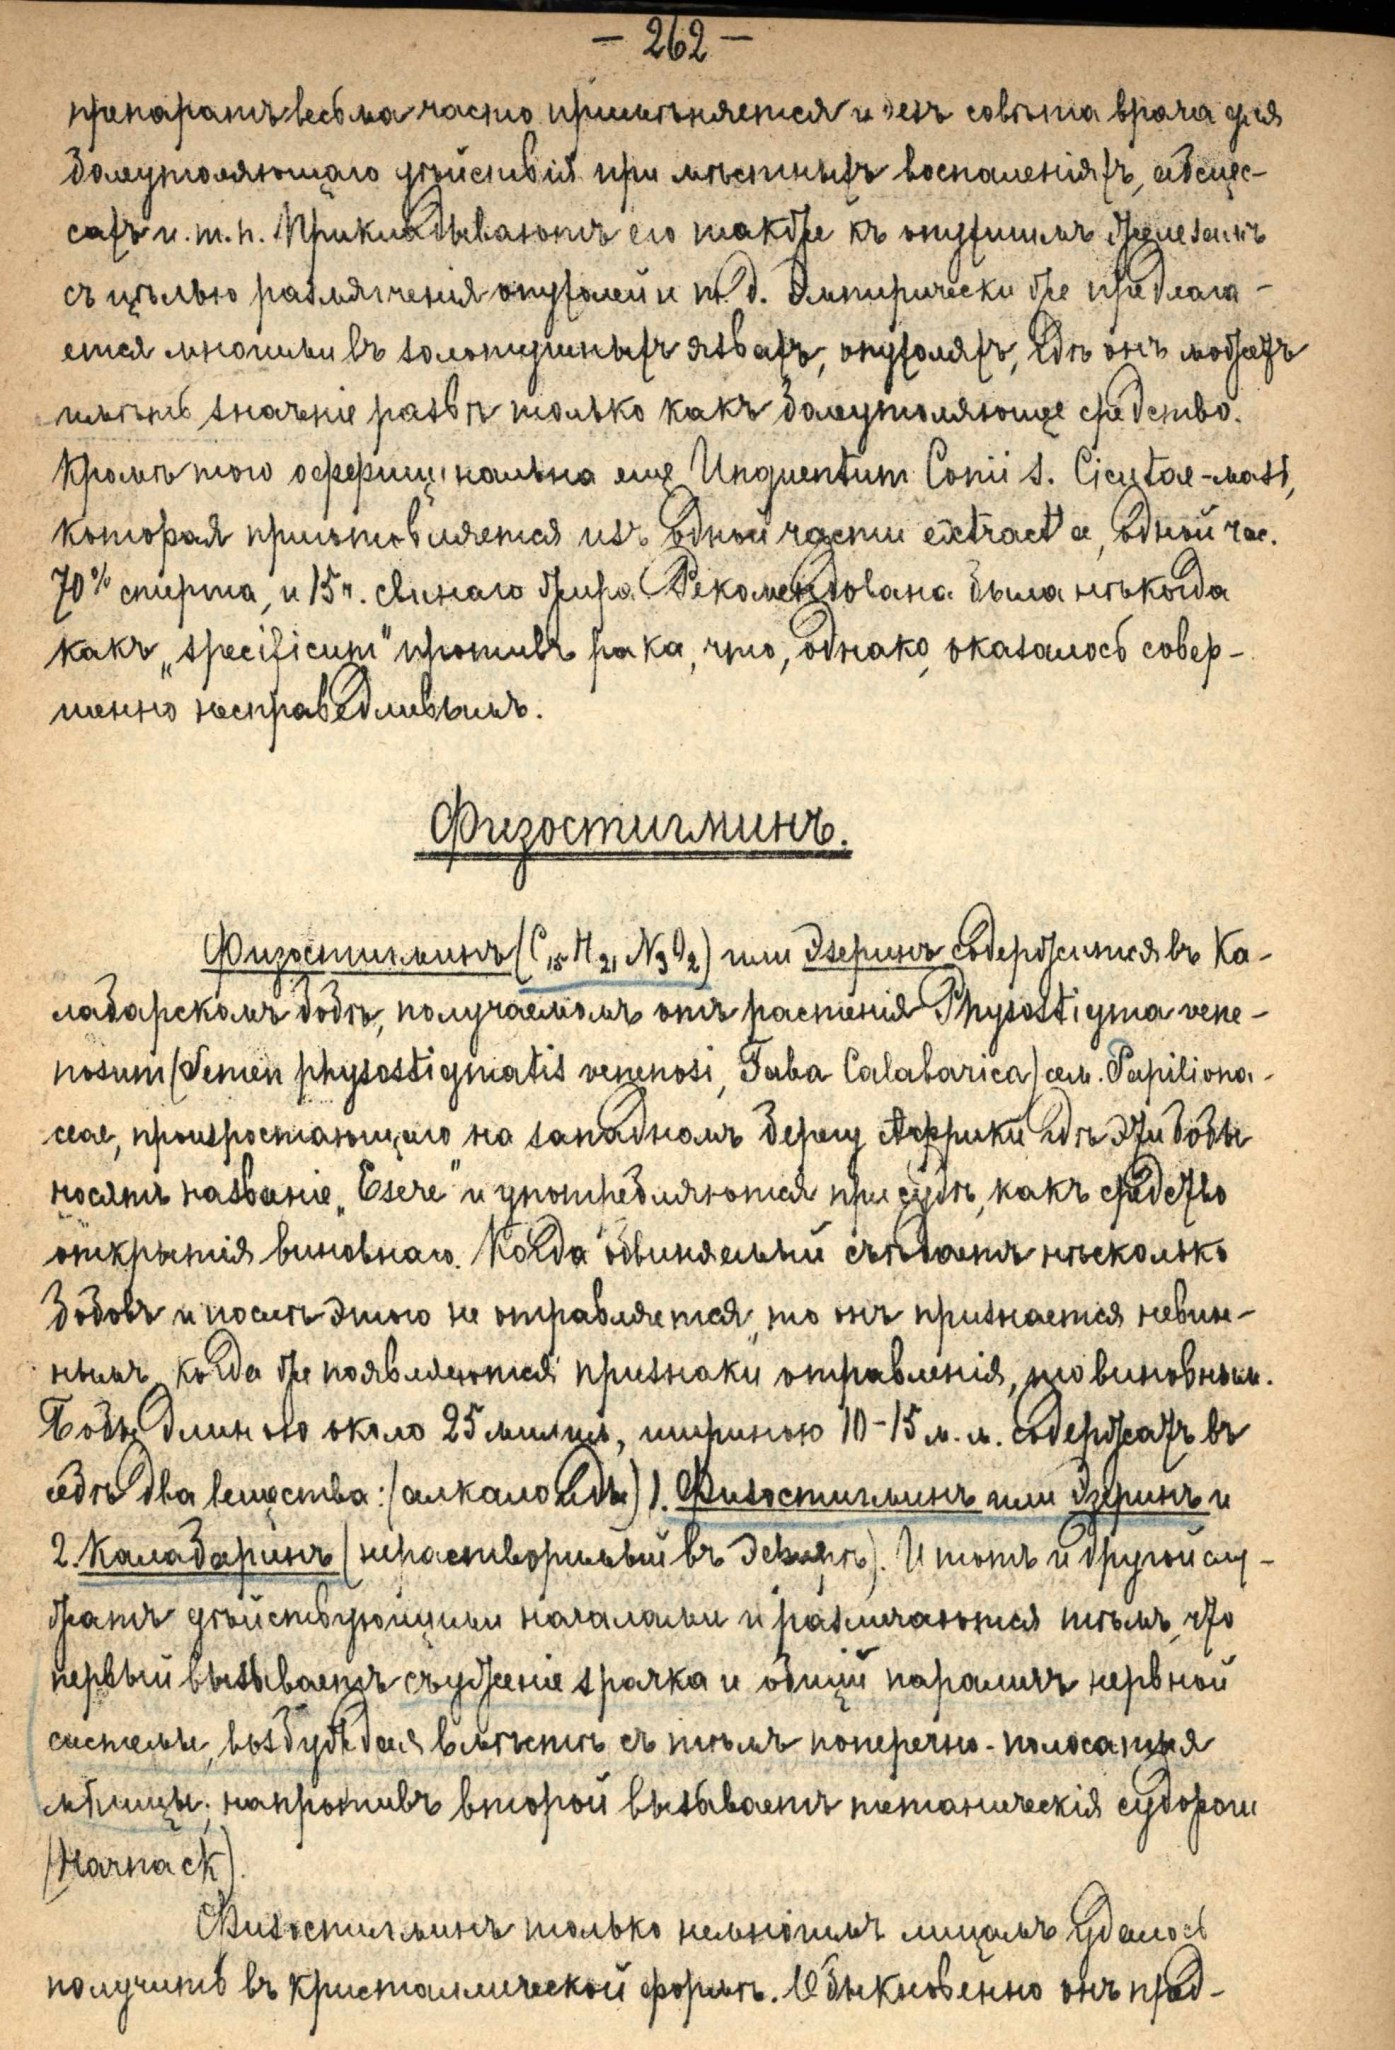 — 262 —
препаратъ весьма часто примѣняется и безъ совѣта врача для
болеутоляющаго дѣйствія при мѣстныхъ воспаленіяхъ, абсцес-
сахъ и. т. п. Прикладываютъ его также къ опухшимъ железамъ
съ цѣлью размягченія опухолей и т. д. Эмпирически же предлага-
ется многими въ золотушныхъ язвахъ, опухоляхъ, гдѣ онъ можетъ
имѣть значеніе развѣ только какъ болеутоляюще средство.
Кромѣ того оффицінальна еще Unguentum Conii s. Cicutae-мазь,
которая приготовляется изъ одной части extract'а, одной час.
70% спирта, и 15 ч. свинаго жира. Рекомендована была нѣкогда
какъ „specificum" противъ рака, что, однако, оказалось совер-
шенно несправедливымъ.
Физостигминъ.
Физостигминъ (C15 H21 N3 O2) или Эзеринъ содержится въ Ка-
лабарскомъ бобѣ, получаемомъ отъ растенія Physostigma vene-
nosum (Semen physostigmatis venenosi, Faba Calabarica) сем. Papiliona-
ceae, произростающаго на западномъ берегу Африки гдѣ эти бобы
носятъ названіе „Esere" и употребляются при судѣ, какъ средство
открытія виновнаго. Когда обвиняемый съѣдаетъ нѣсколько
бобовъ и послѣ этого не отравляется, то онъ признается невин-
нымъ, когда же появляются признаки отравленія, то виновным.
Бобы длиною около 25 милим, шириною 10-15 м.м. содержатъ въ
себѣ два вещества: (алкалоиды) 1. Физостигминъ или Эзеринъ и
2. Калабаринъ (нерастворимый въ Эфирѣ). И тотъ и другой слу-
жатъ дѣйствующими началами и различаются тѣмъ, что
первый вызываетъ съуженіе зрачка и общій параличъ нервной
системы, возбуждая вмѣстѣ съ тѣмъ поперечно-полосатыя
мышцы; напротивъ второй вызываетъ тетаническія судороги
(Harnack).
Физостигминъ только немногимъ лицамъ удалось
получить въ кристаллической формѣ. Обыкновенно онъ пред-